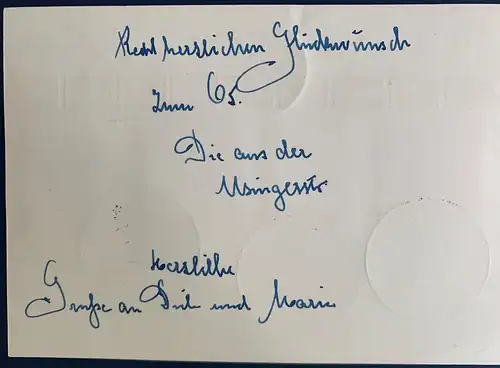 Recht herzlichen Glückwunsch
zum 65.
Die aus der
Usingerstr
Herzliche
Grüße an Dich und Marie